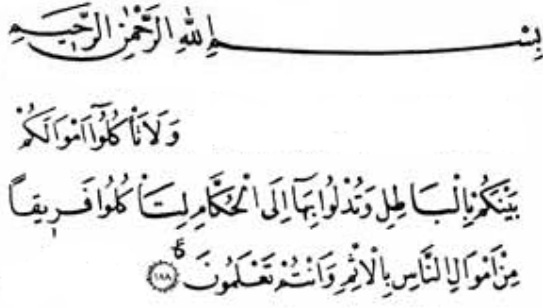 بِسْمِ اللّٰهِ الرَّحْمٰنِ الرَّحٖيمِ
وَلَا تَاْكُلُٓوا اَمْوَالَكُمْ
بَيْنَكُمْ بِالْبَاطِلِ وَتُدْلُوا بِهَٓا اِلَى الْحُكَّامِ لِتَاْكُلُوا فَرٖيقاً
مِنْ اَمْوَالِ النَّاسِ بِالْاِثْمِ وَاَنْتُمْ تَعْلَمُونَ ع ﴿١٨٨﴾